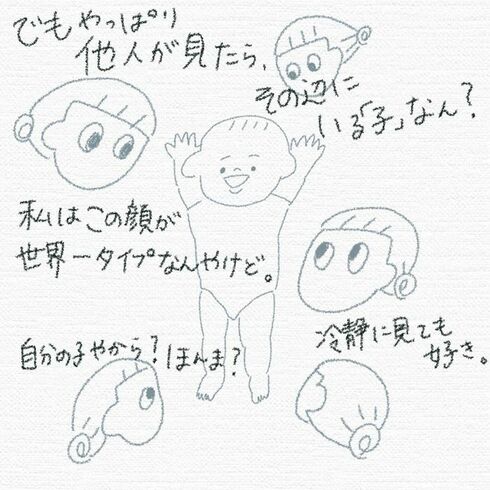 でもやっぱり
他人が見たら、
その辺に
いる「子」なん？
私はこの顔が
世界一タイプなんやけど。
自分の子やから？ほんま？
冷静に見ても
好き。